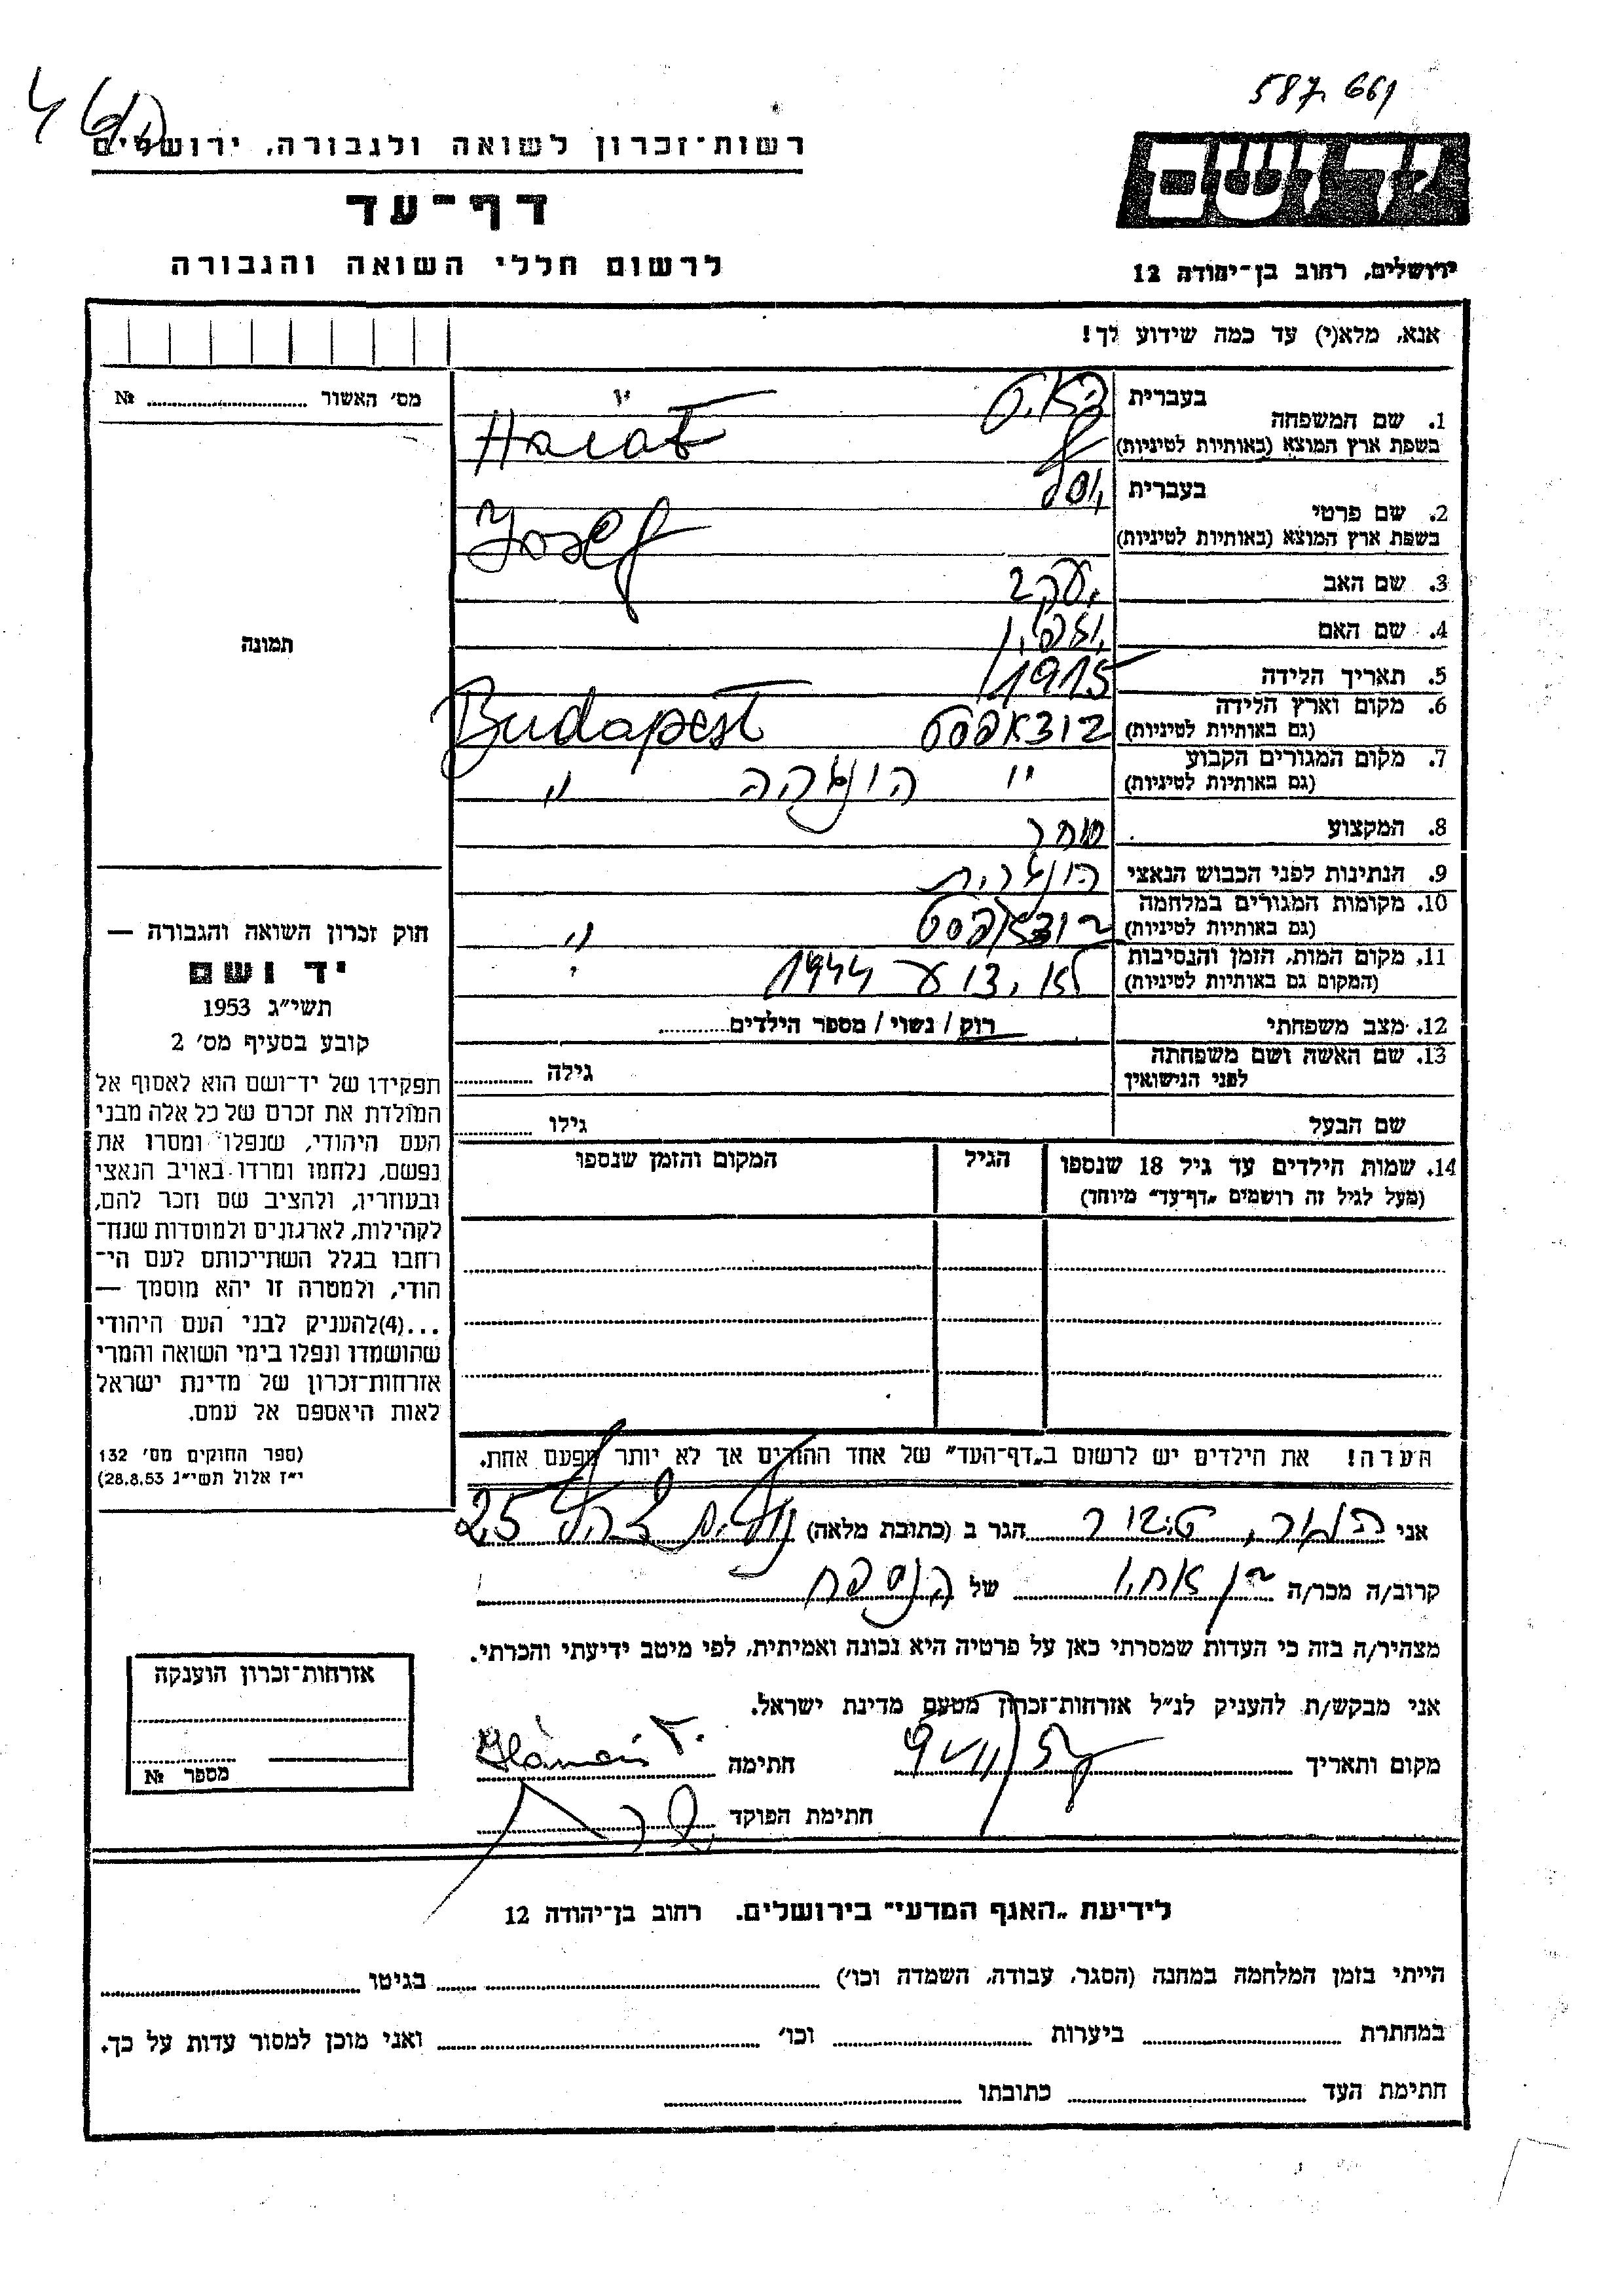 587661
רשות־זכרון לשואה ולגבורה, ירושלים
יד ושם
דף־עד
לרשום חללי השואה והגבורה
ירושלים, רחוב בן־יהודה 12
אנא, מלא(י) עד כמה שידוע לך!
מס׳ האשור № 
1. שם המשפחה
בעברית
בשפת ארץ המוצא (באותיות לטיניות)
2. שם פרטי
בעברית יוסף
בשפת ארץ המוצא (באותיות לטיניות) Josef
3. שם האב יעקב
4. שם האם
5. תאריך הלידה 1915
6. מקום וארץ הלידה בודאפסט Budapest
(גם באותיות לטיניות)
7. מקום המגורים הקבוע " הונגריה "
(גם באותיות לטיניות)
8. המקצוע סוחר
9. הנתינות לפני הכבוש הנאצי הונגרית
10. מקומות המגורים במלחמה בודאפסט "
(גם באותיות לטיניות)
11. מקום המות, הזמן והנסיבות לא ידוע 1944
(המקום גם באותיות לטיניות)
12. מצב משפחתי רוק / נשוי / מספר הילדים
13. שם האשה ושם משפחתה
לפני הנישואין גילה
שם הבעל גילו
14. שמות הילדים עד גיל 18 שנספו
(מעל לגיל זה רושמים „דף־עד״ מיוחד)
הגיל
המקום והזמן שנספו
הערה! את הילדים יש לרשום ב„דף־העד״ של אחד ההורים אך לא יותר מפעם אחת.
תמונה
חוק זכרון השואה והגבורה —
יד ושם
תשי״ג 1953
קובע בסעיף מס׳ 2
תפקידו של יד־ושם הוא לאסוף אל
המולדת את זכרם של כל אלה מבני
העם היהודי, שנפלו ומסרו את
נפשם, נלחמו ומרדו באויב הנאצי
ובעוזריו, ולהציב שם וזכר להם,
לקהילות, לארגונים ולמוסדות שנח־
רחבו בגלל השתייכותם לעם הי־
הודי, ולמטרה זו יהא מוסמך —
...(4)להעניק לבני העם היהודי
שהושמדו ונפלו בימי השואה והמרי
אזרחות־זכרון של מדינת ישראל
לאות היאספם אל עמם.
(ספר החוקים מס׳ 132
י״ז אלול תשי״ג 28.8.53)
אני הגר ב (כתובת מלאה) 25
קרוב/ה מכר/ה בן אחיו של הנספה
מצהיר/ה בזה כי העדות שמסרתי כאן על פרטיה היא נכונה ואמיתית, לפי מיטב ידיעתי והכרתי.
אני מבקש/ת להעניק לנ״ל אזרחות־זכרון מטעם מדינת ישראל.
מקום ותאריך חתימה
חתימת הפוקד
אזרחות־זכרון הוענקה
מספר №
לידיעת „האגף המדעי״ בירושלים. רחוב בן־יהודה 12
הייתי בזמן המלחמה במחנה (הסגר, עבודה, השמדה וכו׳) בגיטו
במחתרת ביערות וכו׳ ואני מוכן למסור עדות על כך.
חתימת העד כתובתו